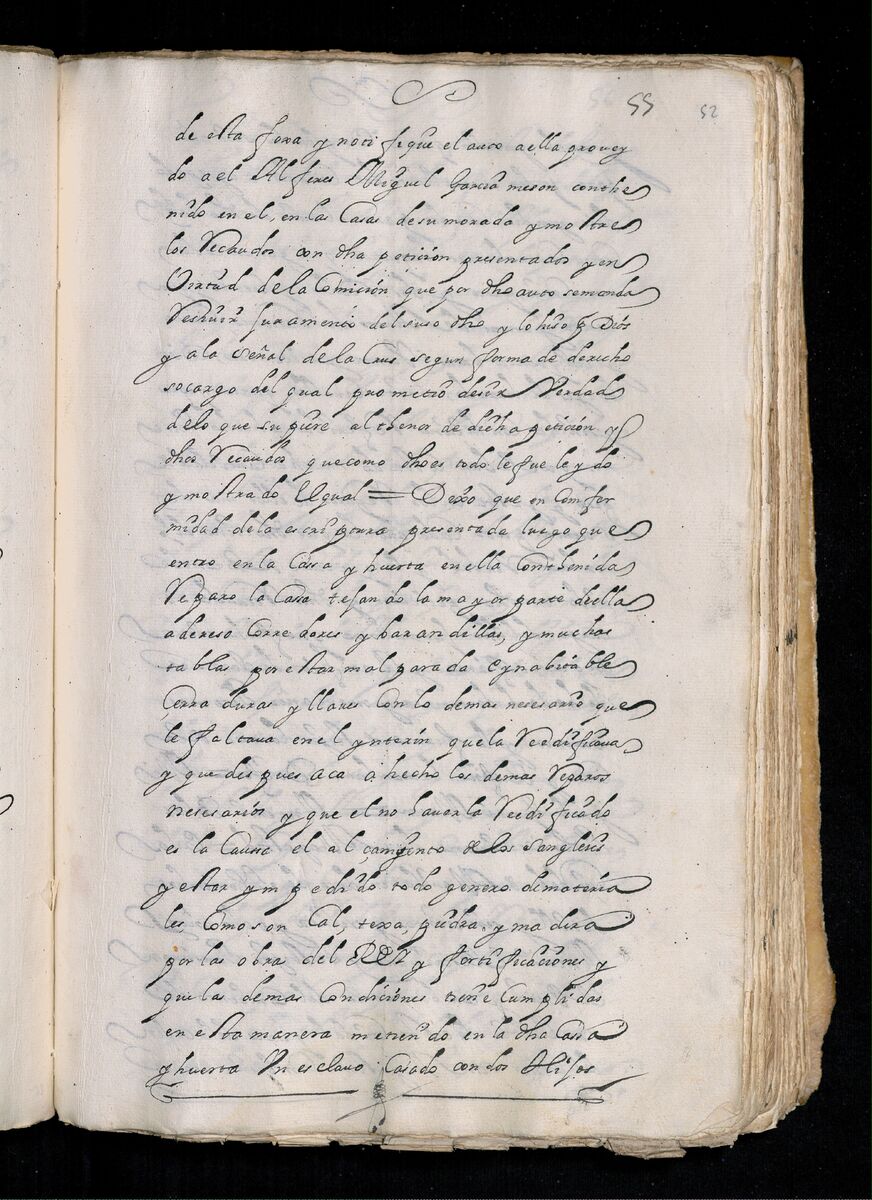 55 52
de esta foxa y notifique el auto a ella provey
do a el Alferes Miguel Garcia meson conthe
nido en el, en las Casas de su morada y mostre
los Recaudos con dha petición presentados y en
Virtud de la Comición que por dho auto se manda
Resevir juramento del suso dho y lo hiso p Dios
y a la señal de la Crus segun forma de derecho
so cargo del qual prometio desir Verdad
de lo que supiere al thenor de dicha petición y
dhos Recaudos que como dho es todo le fue leydo
y mostrado Ygual = Dexo que en Comfor
midad de la escriptura presentada luego que
entro en la Cassa y huerta en ella Conthenida
Reparo la Casa tejando la mayor parte de ella
adereso Corredores y barandillas, y muchas
tablas por estar mal parada e ynabitable
Cerraduras y llaves Con lo demas nesesario que
le faltava en el ynterin que la Reedificava
y que despues aca a hecho los demas Reparos
nesesarios y que el no haverla Reedificado
es la Caussa el alçamyento de los Sangleyes
y estar ympedido todo genero de materia
les, Como son Cal, texa, piedra, y madera
por las obras del REY y fortificaciones y
que las demas Condiciones tiene Cumplidas
en esta manera metiendo en la dha Cassa
y huerta Un esclavo Casado con dos Hijos